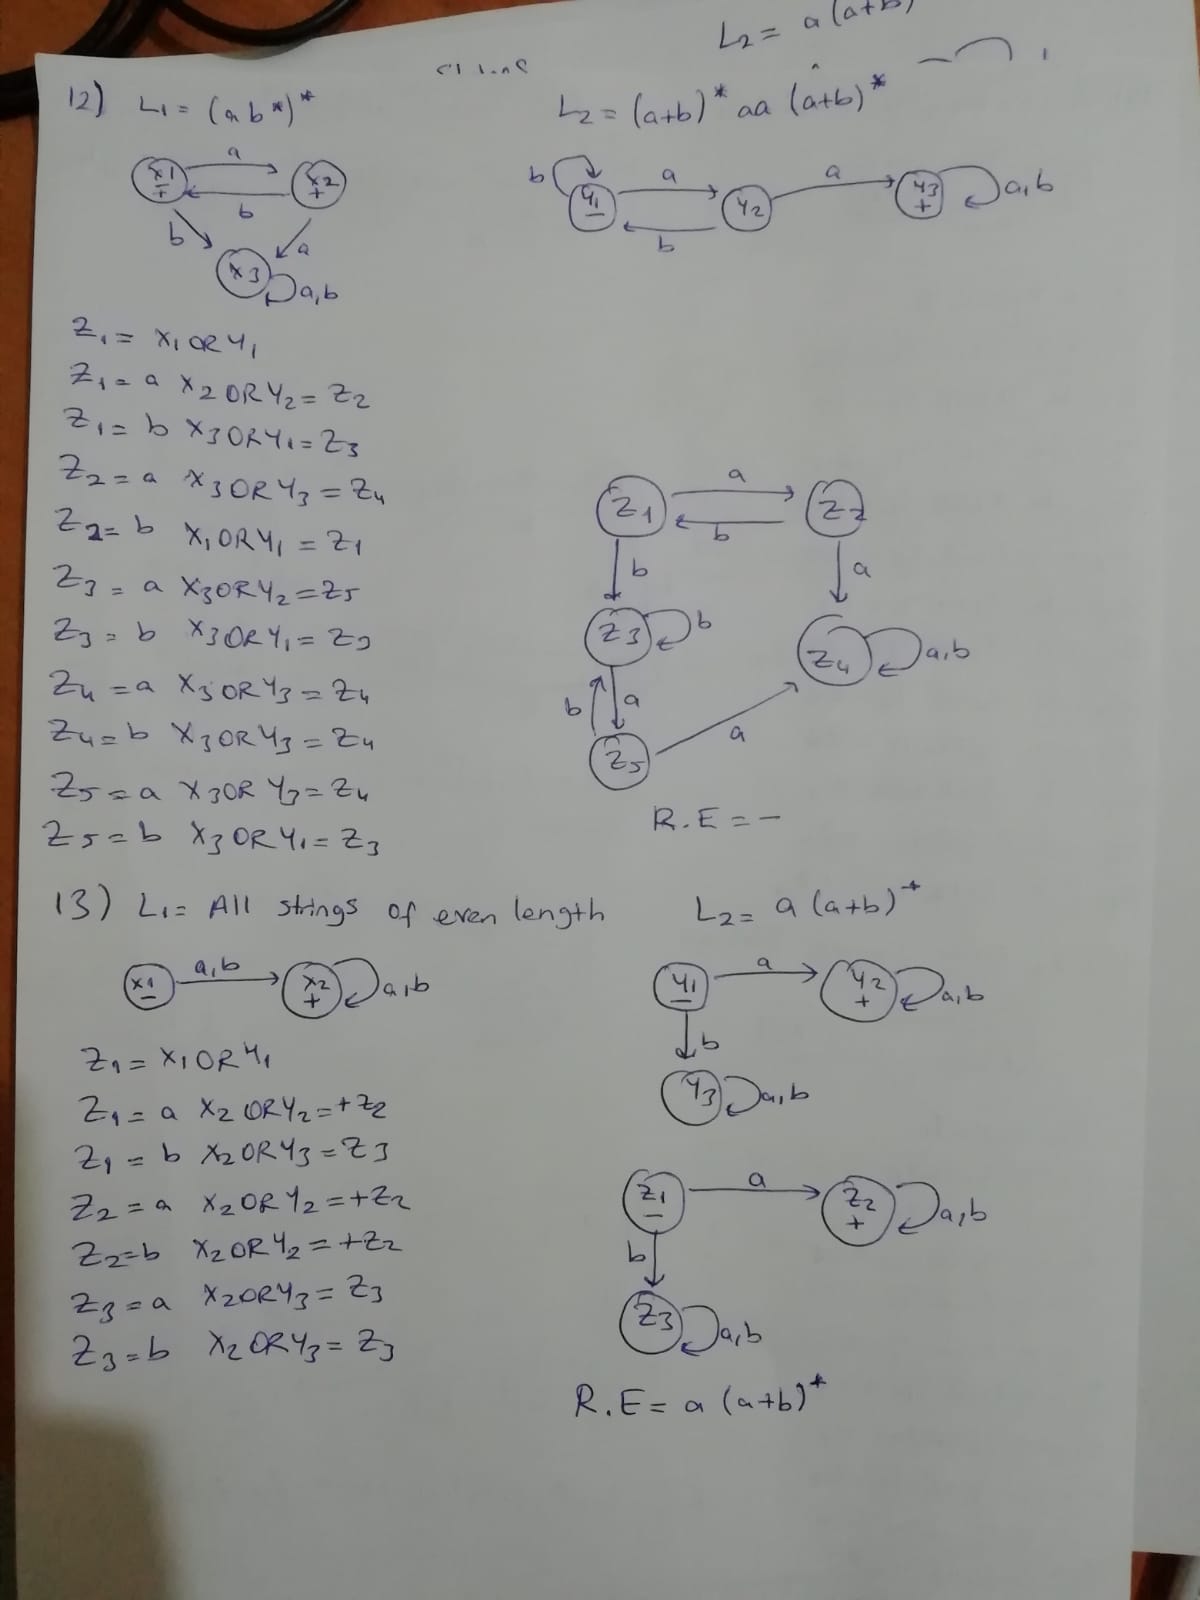 L₂ = a (a+b)
12) L₁ = (ab*)*
L₂ = (a+b)* aa (a+b)*
x1 ±
a
x2 +
b
b
a
x3
a,b
b
y₁ -
a
y2
a
y3 +
a,b
b
Z₁ = x₁ OR y₁
Z₁ = a x2 OR y2 = Z2
Z₁ = b x3 OR y₁ = Z3
Z2 = a x3 OR y3 = Z4
Z2 = b x₁ OR y₁ = Z1
Z3 = a x3 OR y2 = Z5
Z3 = b x3 OR y₁ = Z3
Z4 = a x3 OR y3 = Z4
Z4 = b x3 OR y3 = Z4
Z5 = a x3 OR y3 = Z4
Z5 = b x3 OR y₁ = Z3
Z1
a
Z2
b
b
a
Z3
b
Z4
a,b
b
a
Z5
a
R.E = -
13) L₁ = All strings of even length
L₂ = a (a+b)*
x1 -
a,b
x2 +
a,b
y1 -
a
y2 +
a,b
b
y3
a,b
Z1 = x1 OR y1
Z1 = a x2 OR y2 = +Z2
Z1 = b x2 OR y3 = Z3
Z2 = a x2 OR y2 = +Z2
Z2 = b x2 OR y2 = +Z2
Z3 = a x2 OR y3 = Z3
Z3 = b x2 OR y3 = Z3
Z1 -
a
Z2 +
a,b
b
Z3
a,b
R.E = a (a+b)*